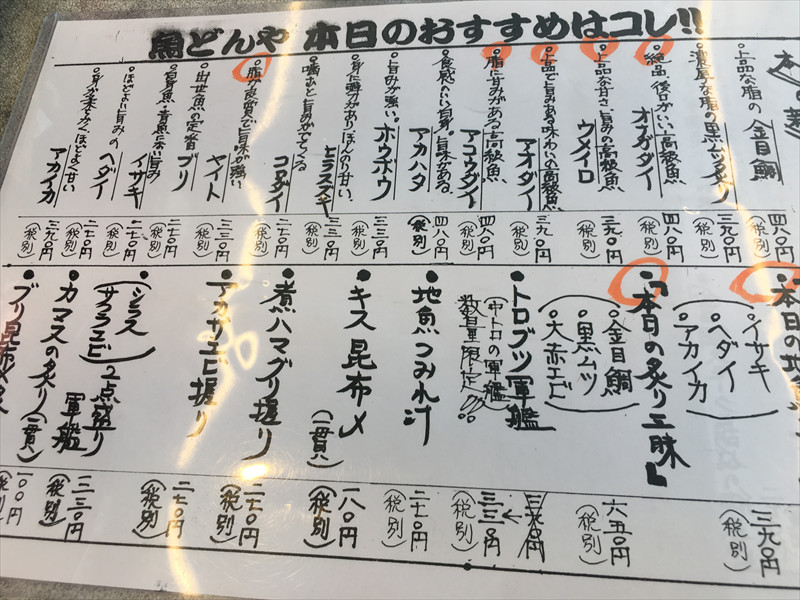 魚どんや 本日のおすすめはコレ!!
本
•上品な脂の 金目鯛
四八〇円
(税別)
•濃厚な脂の 黒ムツ炙り
三九〇円
(税別)
•絶品、後口がいい高級魚 オナガダイ
四八〇円
(税別)
•上品な甘さ、旨みの高級魚 ウメイロ
三九〇円
(税別)
•上品で旨みある味わいの高級魚 アオダイ
三九〇円
(税別)
•脂に甘みがある高級魚 アコウダイ
四八〇円
(税別)
•食感のいい白身。旨味がある。 アカハタ
四八〇円
(税別)
•旨みが強い。 ホウボウ
三三〇円
(税別)
•身に弾力があり、ほんのり甘い。 ヒラスズキ
三三〇円
(税別)
•噛むと旨みがでてくる コロダイ
二七〇円
(税別)
•脂が良質で旨味が強い ヤイト
三三〇円
(税別)
•出世魚の定番 ブリ
二七〇円
(税別)
•白身魚、青魚にない旨み イサキ
二七〇円
(税別)
•ほどよい旨みの ヘダイ
二七〇円
(税別)
•身が柔らかく、ほどよく甘い アカイカ
三九〇円
(税別)
•「本日の地
(イサキ
ヘダイ
アカイカ)
三九〇円
(税別)
•「本日の炙り三昧」
(金目鯛
黒ムツ
大赤エビ)
六五〇円
(税別)
•トロブツ軍艦
(中トロの軍艦)
数量限定!!
三九〇円
三三〇円
(税別)
•地魚つみれ汁
二七〇円
(税別)
•キス昆布〆(一貫)
一八〇円
(税別)
•煮ハマグリ握り
二七〇円
(税別)
•アカザエビ握り
二七〇円
(税別)
•(シラス
サクラエビ)2点盛り
軍艦
三三〇円
(税別)
•カマスの炙り(一貫)
一〇〇円
(税別)
•ブリ昆布〆炙